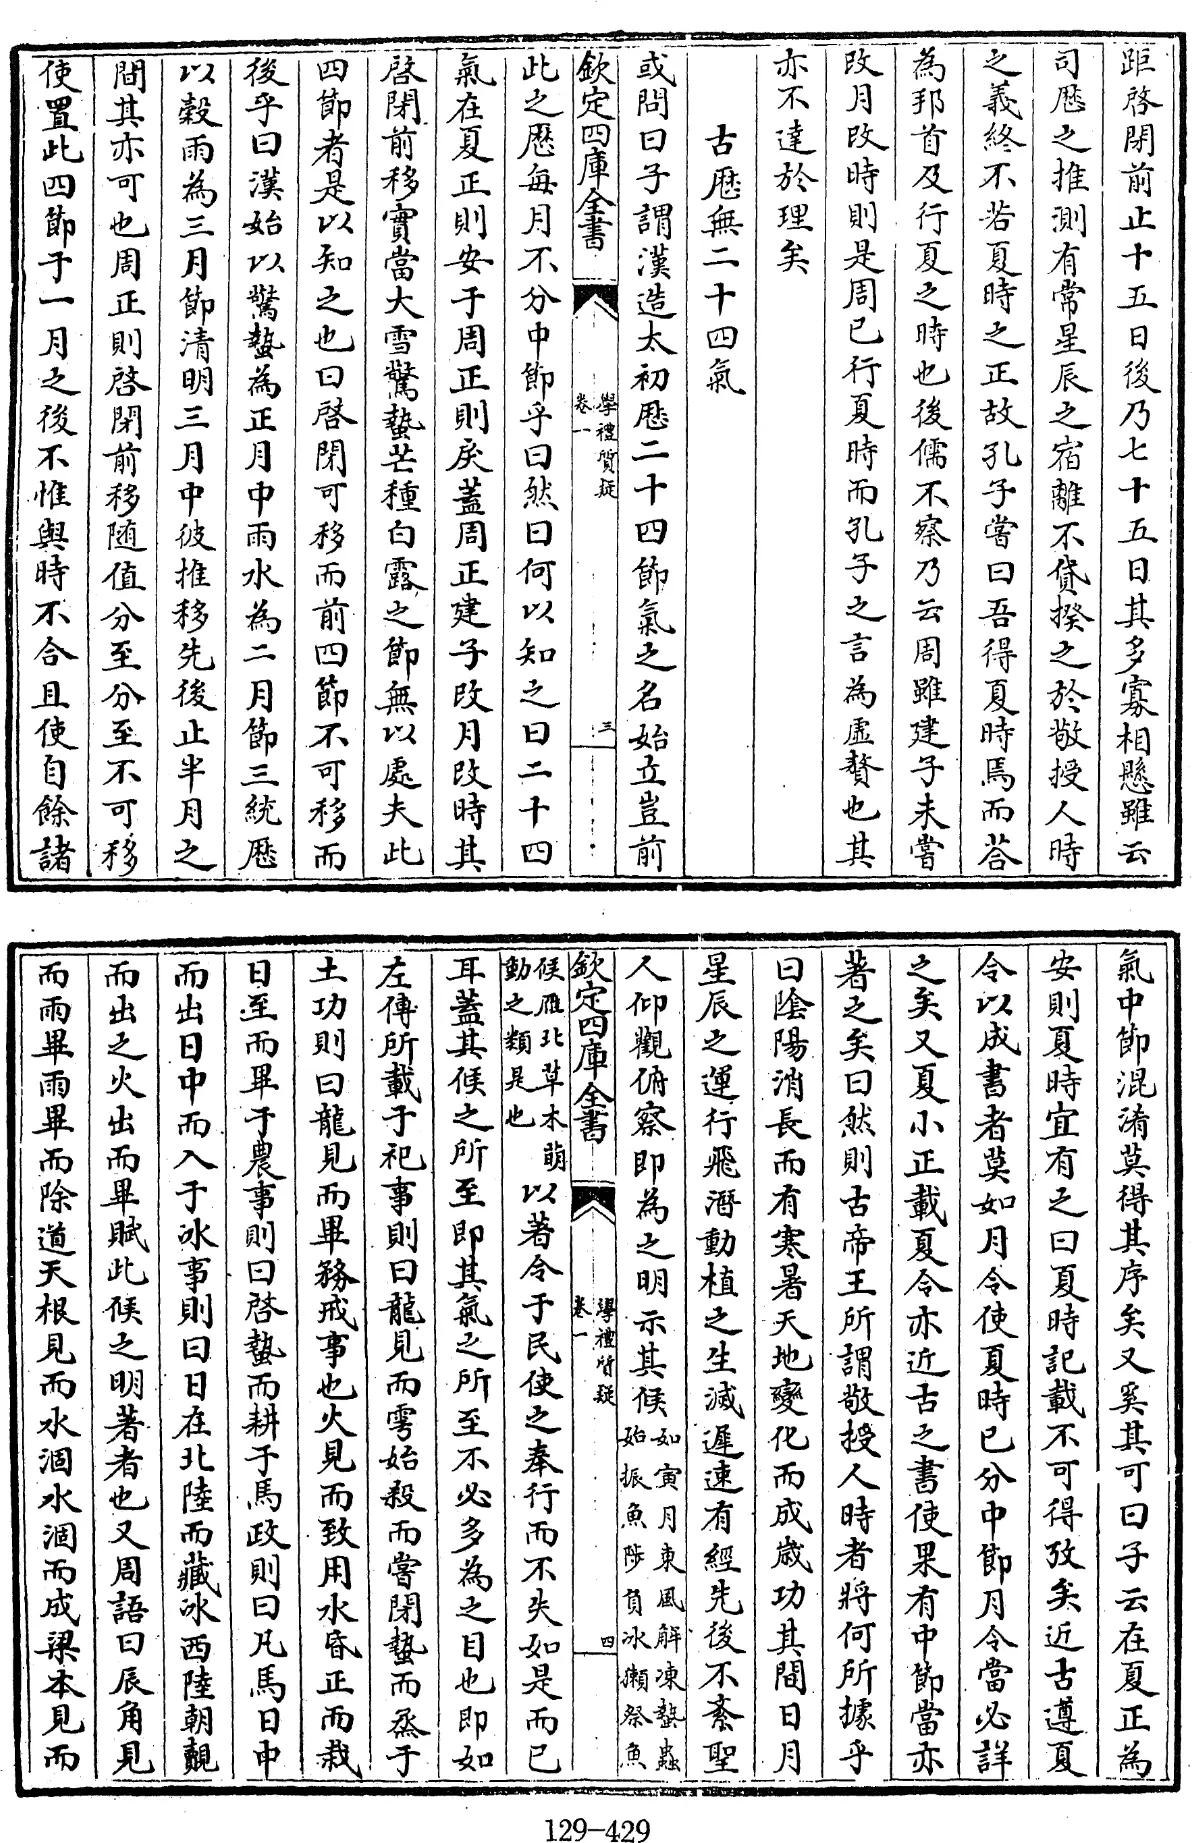 距啓閉前止十五日後乃七十五日其多寡相懸雖云
司厯之推測有常星辰之宿離不貸揆之於敬授人時
之義終不若夏時之正故孔子嘗曰吾得夏時焉而荅
為邦首及行夏之時也後儒不察乃云周雖建子未嘗
改月改時則是周已行夏時而孔子之言為虛贅也其
亦不達於理矣
古厯無二十四氣
或問曰子謂漢造太初厯二十四節氣之名始立豈前
欽定四庫全書
學禮質疑
卷一
三
此之厯每月不分中節乎曰然曰何以知之曰二十四
氣在夏正則安于周正則戾蓋周正建子改月改時其
啓閉前移實當大雪驚蟄芒種白露之節無以處夫此
四節者是以知之也曰啓閉可移而前四節不可移而
後乎曰漢始以驚蟄為正月中雨水為二月節三統厯
以穀雨為三月節清明三月中彼推移先後止半月之
間其亦可也周正則啓閉前移隨值分至分至不可移
使置此四節于一月之後不惟與時不合且使自餘諸
氣中節混淆莫得其序矣又奚其可曰子云在夏正為
安則夏時宜有之曰夏時記載不可得攷矣近古遵夏
令以成書者莫如月令使夏時已分中節月令當必詳
之矣又夏小正載夏令亦近古之書使果有中節當亦
著之矣曰然則古帝王所謂敬授人時者將何所據乎
曰陰陽消長而有寒暑天地變化而成歲功其間日月
星辰之運行飛潛動植之生滅遲速有經先後不紊聖
人仰觀俯察即為之明示其候如寅月東風解凍蟄蟲
始振魚陟負冰獺祭魚
欽定四庫全書
學禮質疑
卷一
四
候雁北草木萌
動之類是也以著令于民使之奉行而不失如是而已
耳蓋其候之所至即其氣之所至不必多為之目也即如
左傳所載于祀事則曰龍見而雩始殺而嘗閉蟄而烝于
土功則曰龍見而畢務戒事也火見而致用水昏正而栽
日至而畢于農事則曰啓蟄而耕于馬政則曰凡馬日中
而出日中而入于冰事則曰日在北陸而藏冰西陸朝覿
而出之火出而畢賦此候之明著者也又周語曰辰角見
而雨畢雨畢而除道天根見而水涸水涸而成梁本見而
129-429